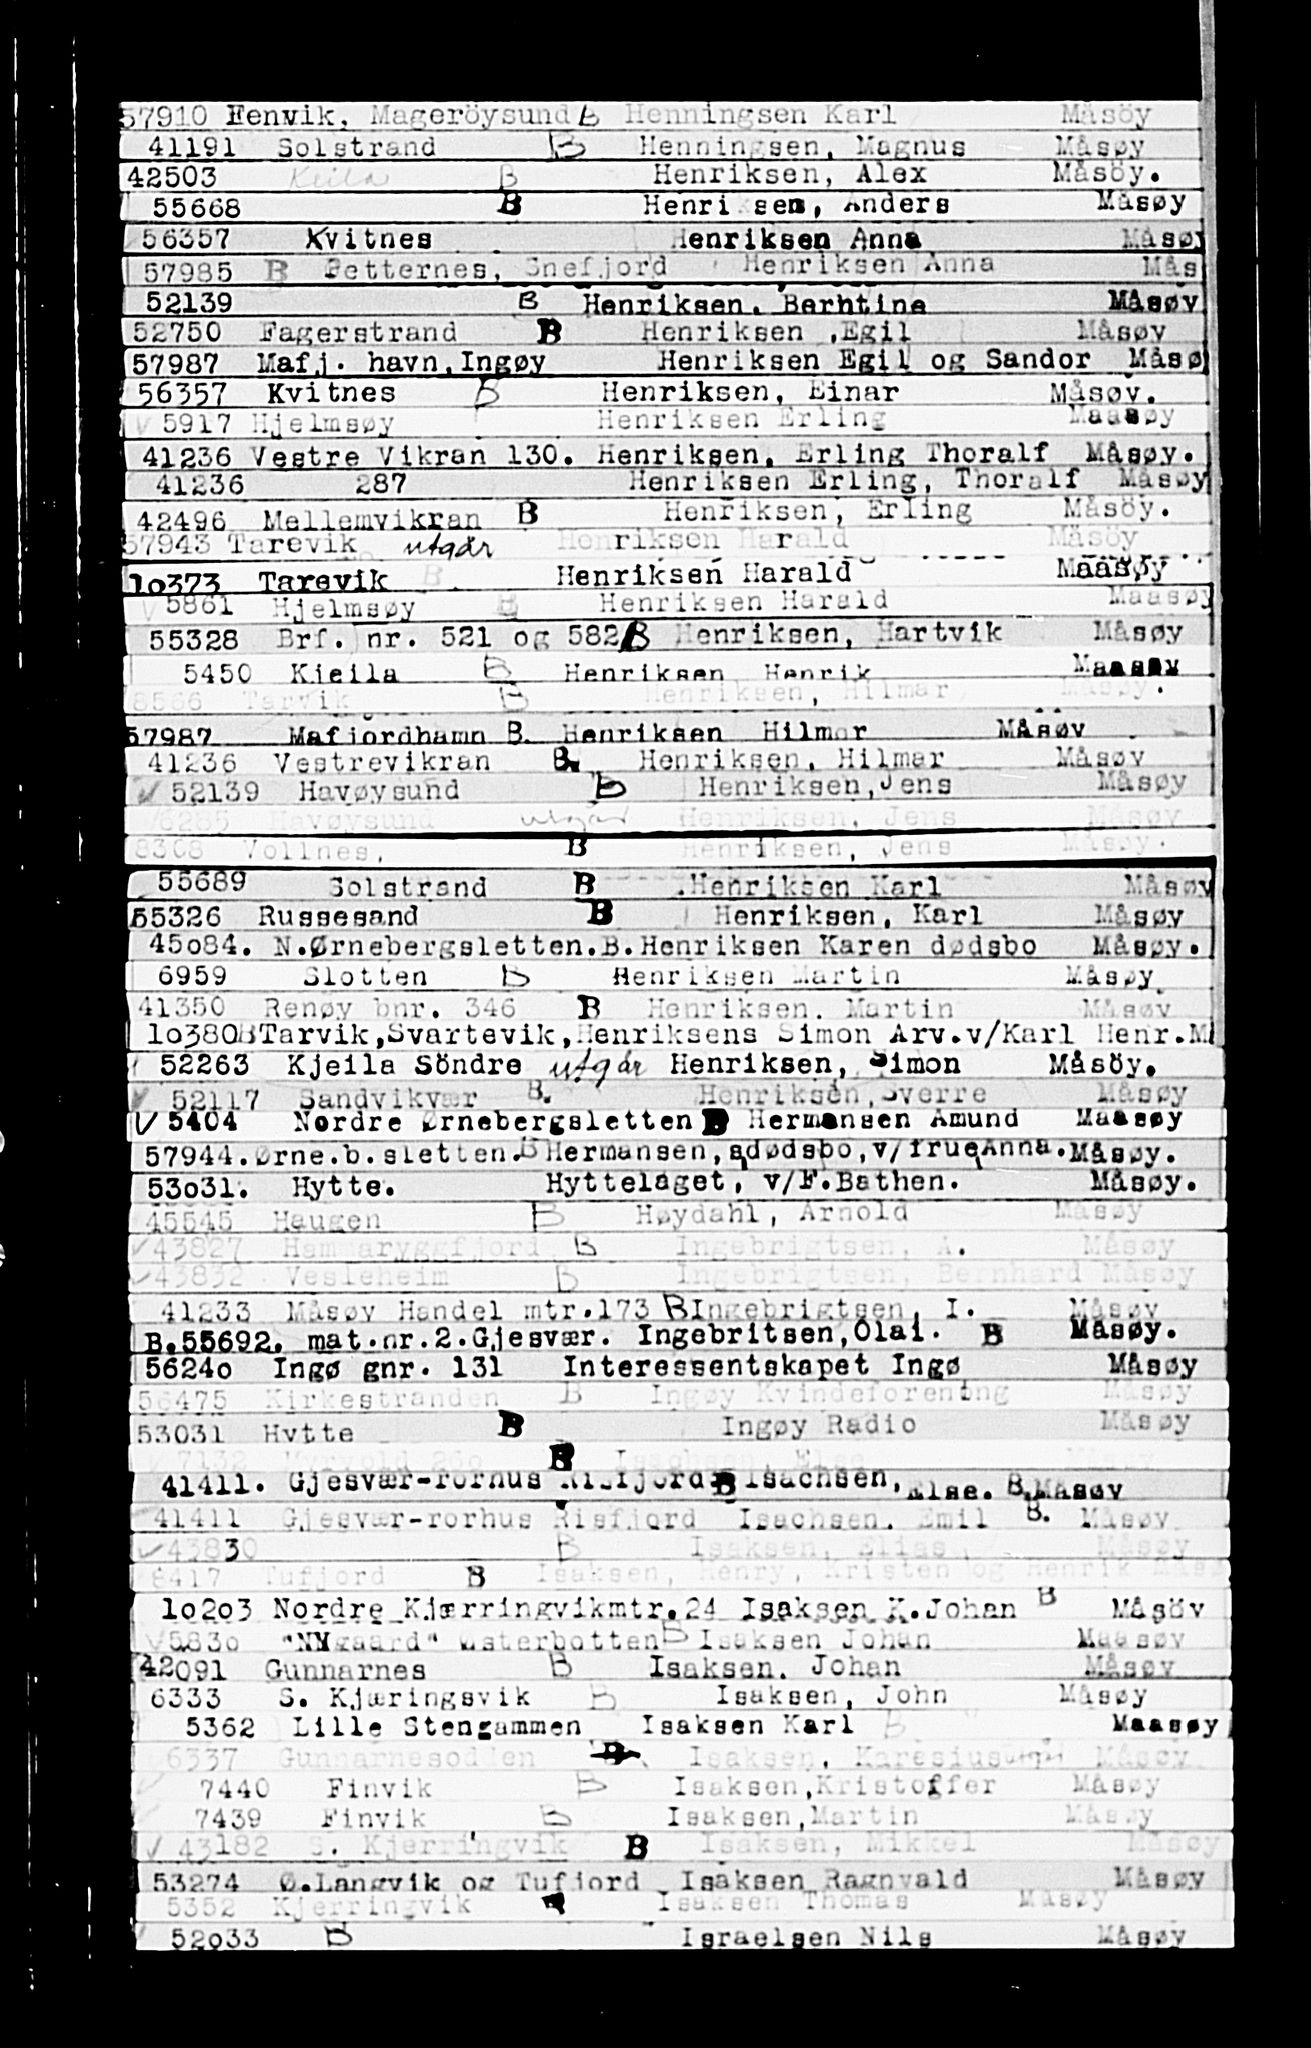 57910 Fenvik, Mageröysund B Henningsen Karl Måsöy
41191 Solstrand B Henningsen, Magnus Måsøy
42503 Keila B Henriksen, Alex Måsöy.
55668 B Henriksen, Anders Måsøy
56357 Kvitnes Henriksen Anna Måsøy
57985 B Petternes, Snefjord Henriksen Anna Mås
52139 B Henriksen, Berhtine Måsøy
52750 Fagerstrand B Henriksen ,Egil Måsøy
57987 Mafj. havn,Ingøy Henriksen Egil og Sandor Måsø
56357 Kvitnes B Henriksen, Einar Måsøy.
V 5917 Hjelmsøy Henriksen Erling Maasøy
41236 Vestre Vikran 130. Henriksen, Erling Thoralf Måsøy.
41236 287 Henriksen Erling, Thoralf Måsøy
42496 Mellemvikran B Henriksen, Erling Måsöy.
57943 Tarevik utgår Henriksen Harald Måsöy
10373 Tarevik B Henriksen Harald Maasøy
V 5861 Hjelmsøy B Henriksen Harald Maasøy
55328 Brf. nr. 521 og 582 B Henriksen, Hartvik Måsøy
5450 Kieila B Henriksen Henrik Maasøy
8566 Tarvik B Henriksen, Hilmar Måsøy.
57987 Mafjordhamn B. Henriksen Hilmar Måsøv
41236 Vestrevikran B. Henriksen, Hilmar Måsøy
V 52139 Havøysund B Henriksen,Jens Måsøy
V 6285 Havøysund utgår Henriksen, Jens Måsøy
8308 Vollnes, B Henriksen, Jens Måsøy.
55689 Solstrand B Henriksen Karl Måsøy
55326 Russesand B Henriksen, Karl Måsøy
45084. N.Ørnebergsletten.B.Henriksen Karen dødsbo Måsøy.
6959 Slotten B Henriksen Martin Måsøy
41350 Renøy bnr. 346 B Henriksen, Martin Måsøy
10380B Tarvik,Svartevik,Henriksens Simon Arv.v/Karl Henr.M
52263 Kjeila Söndre utgår Henriksen, Simon Måsöy.
V 52117 Sandvikvær B. Henriksen,Sverre Måsøy
V 5404 Nordre Ørnebergsletten B Hermansen Amund Maasøy
57944.Ørne.b.sletten.B Hermansen,sdødsbo,v/frueAnna.Måsøy.
53031. Hytte. Hyttelaget, v/F.Bathen. Måsøy.
45545 Haugen B Høydahl, Arnold Måsøy
V 43827 Hammaryggfjord B Ingebrigtsen, A. Måsøy
V 43832 Vesleheim B Ingebrigtsen, Bernhard Måsøy
41233 Måsøy Handel mtr.173 B Ingebrigtsen, I. Måsøy
B.55692. mat.nr.2.Gjesvær. Ingebritsen,Olai. B Måsøy.
56240 Ingø gnr. 131 Interessentskapet Ingø Måsøy
56475 Kirkestranden B Ingøy Kvindeforening Måsøy
53031 Hytte B Ingøy Radio Måsøy
V 7132 Myrvold 260 B Isachsen, Else
41411. Gjesvær-rorhus Risfjord B Isachsen, Else. B.Måsøy
41411 Gjesvær-rorhus Risfjord Isachsen, Emil B. Måsøy
V 43830 B Isaksen, Elias Måsøy
6417 Tufjord B Isaksen, Henry, Kristen og Henrik Måsø
10203 Nordre Kjærringvikmtr.24 Isaksen K.Johan B Måsöy
V 5830 "NYgaard" Østerbotten B Isaksen Johan Maasøy
42091 Gunnarnes B Isaksen, Johan Måsøy
6333 S. Kjæringsvik B Isaksen, John Måsøy
5362 Lille Stengammen Isaksen Karl B Maasøy
6337 Gunnarnesodden B Isaksen, Karesius utgår Måsøy
7440 Finvik B Isaksen,Kristoffer Måsøy
7439 Finvik B Isaksen,Martin Måsøy
V 43182 S. Kjerringvik B Isaksen, Mikkel Måsøy
53274 Ø.Langvik og Tufjord Isaksen Ragnvald Måsøy
5352 Kjerringvik Isaksen Thomas Måsøy
V 52033 B Israelsen Nils Måsøy